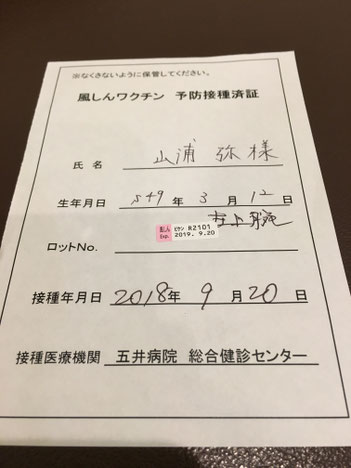 ※なくさないように保管してください。
風しんワクチン 予防接種済証
氏名 山浦 弥様
生年月日 S49年3月12日
ロットNo. 
R2101
Exp. 2019. 9.20
接種年月日 2018年9月20日
接種医療機関 五井病院 総合健診センター